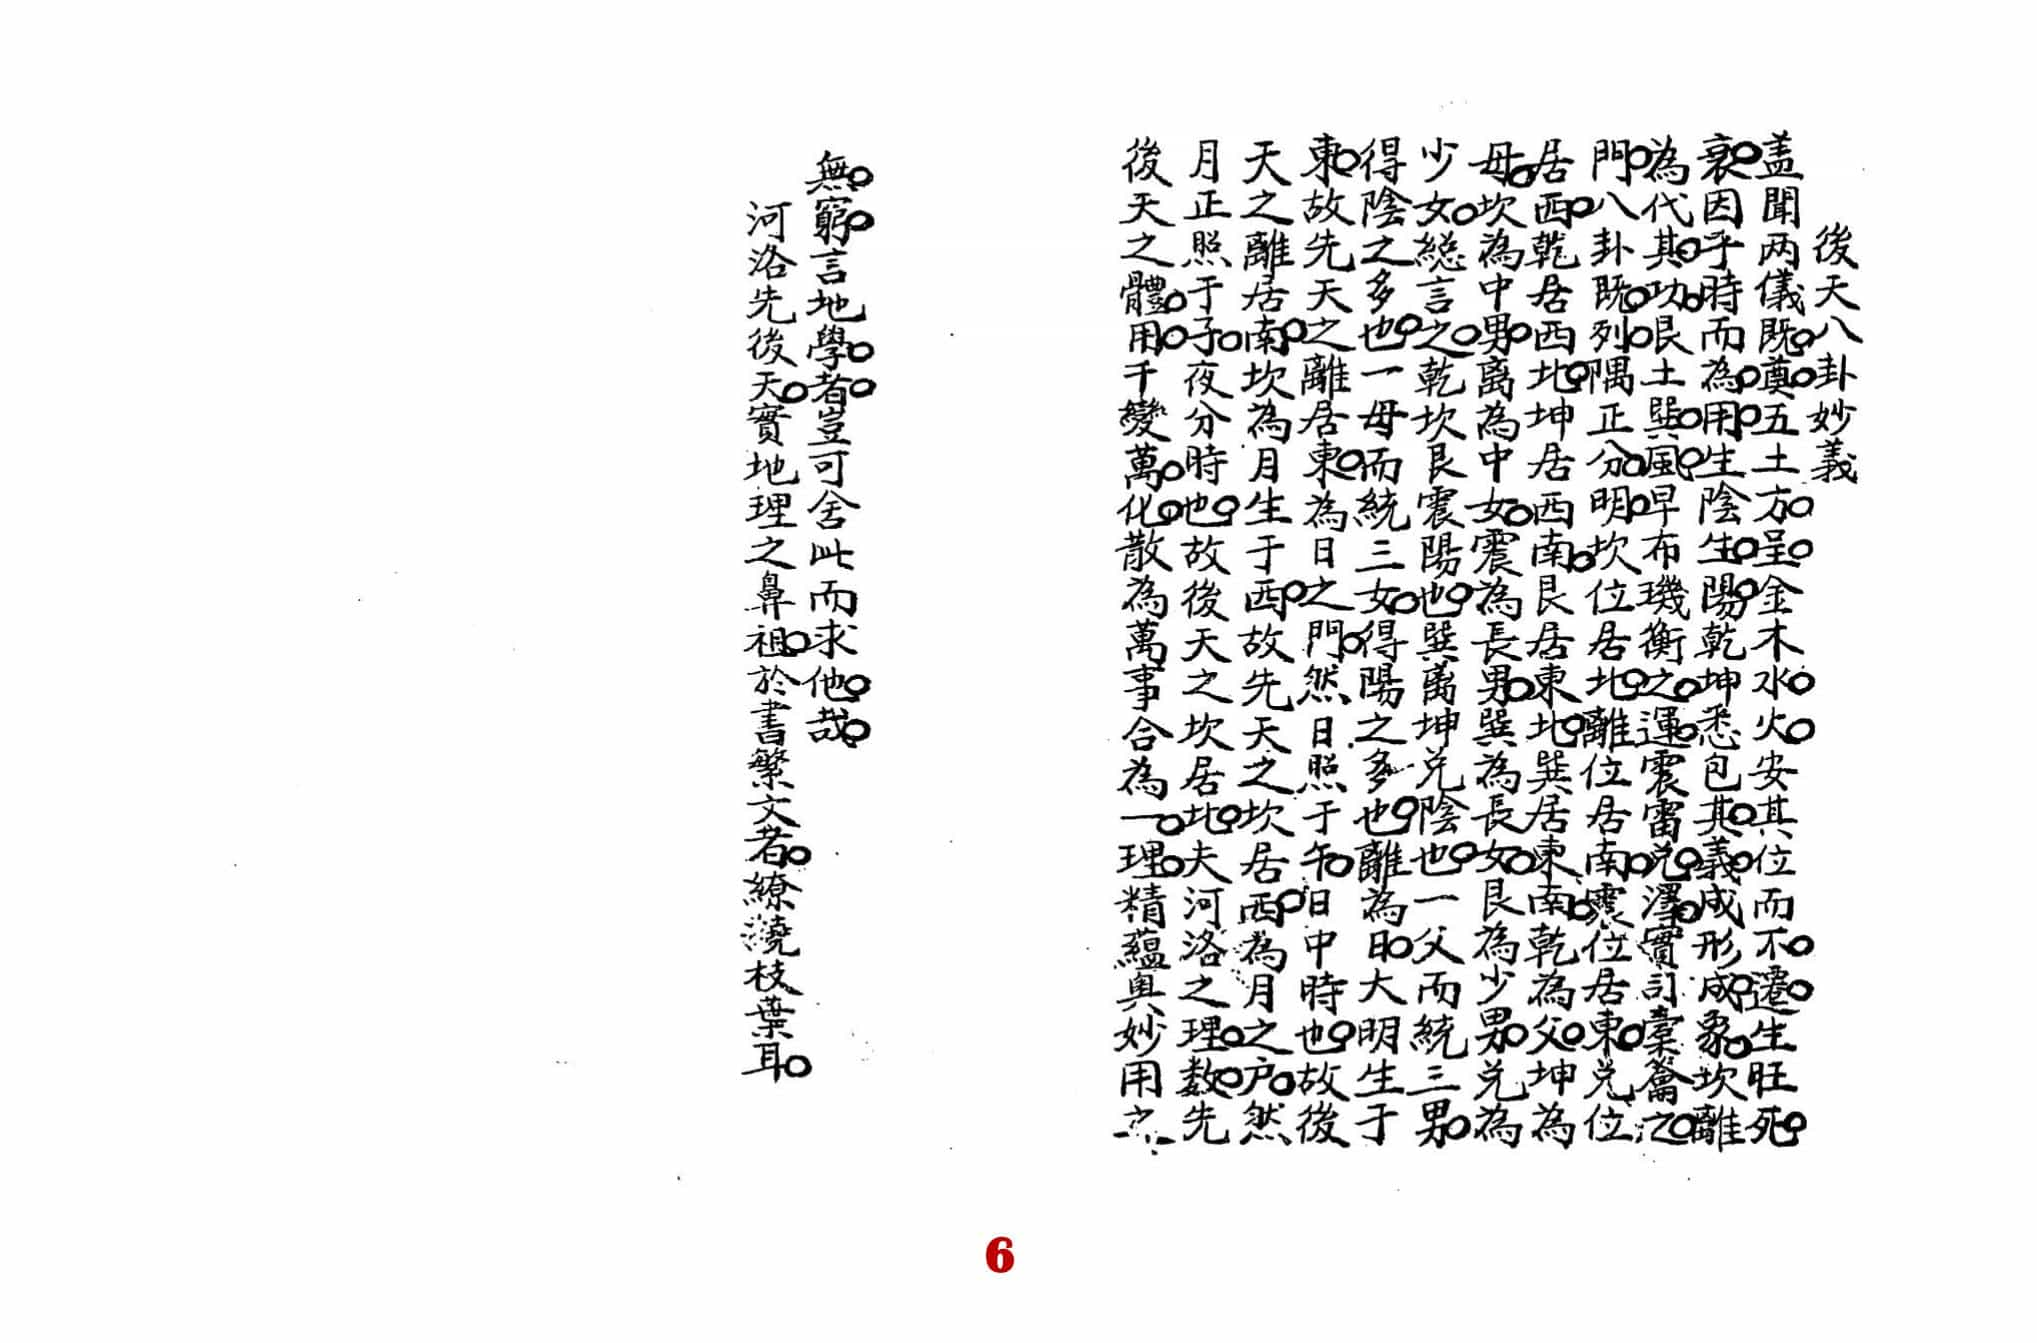 後天八卦妙義
盖聞两儀既奠五土方呈金木水火安其位而不遷生旺死
衰因乎時而為用生陰生陽乾坤悉包其義成形成象坎離
為代其功艮土巽風早布璣衡之運震雷兌澤實司橐籥之
門八卦既列隅正分明坎位居北離位居南震位居東兌位
居西乾居西北坤居西南艮居東北巽居東南乾為父坤為
母坎為中男离為中女震為長男巽為長女艮為少男兌為
少女総言之乾坎艮震陽也巽离坤兌陰也一父而統三男
得陰之多也一母而統三女得陽之多也離為日大明生于
東故先天之離居東為日之門然日照于午日中時也故後
天之離居南坎為月生于西故先天之坎居西為月之户然
月正照于子夜分時也故後天之坎居北夫河洛之理数先
後天之體用千變萬化散為萬事合為一理精蘊奥妙用之
無窮言地學者豈可舍此而求他哉
河洛先後天實地理之鼻祖於書繁文者繚澆枝葉耳
6